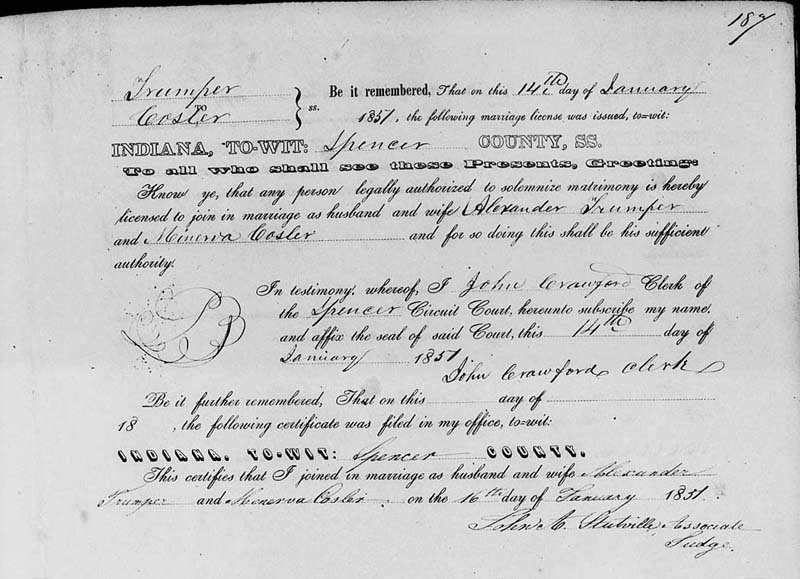 187
Trumper
TO
Cosler
ss.
Be it remembered, That on this 14th day of January
1851, the following marriage license was issued, to=wit:
INDIANA, TO-WIT: Spencer COUNTY, SS.
To all who shall see these Presents, Greeting:
Know ye, that any person legally authorized to solemnize matrimony is hereby
licensed to join in marriage as husband and wife Alexander Trumper
and Minerva Cosler and for so doing this shall be his sufficient
authority.
In testimony whereof, I John Crawford Clerk of
the Spencer Circuit Court, hereunto subscribe my name,
and affix the seal of said Court, this 14th day of
January 1851
John Crawford Clerk
Be it further remembered, That on this day of
18 , the following certificate was filed in my office, to=wit:
INDIANA, TO-WIT: Spencer COUNTY.
This certifies that I joined in marriage as husband and wife Alexander
Trumper and Minerva Cosler on the 16th day of January 1851.
John A. Associate
Judge.